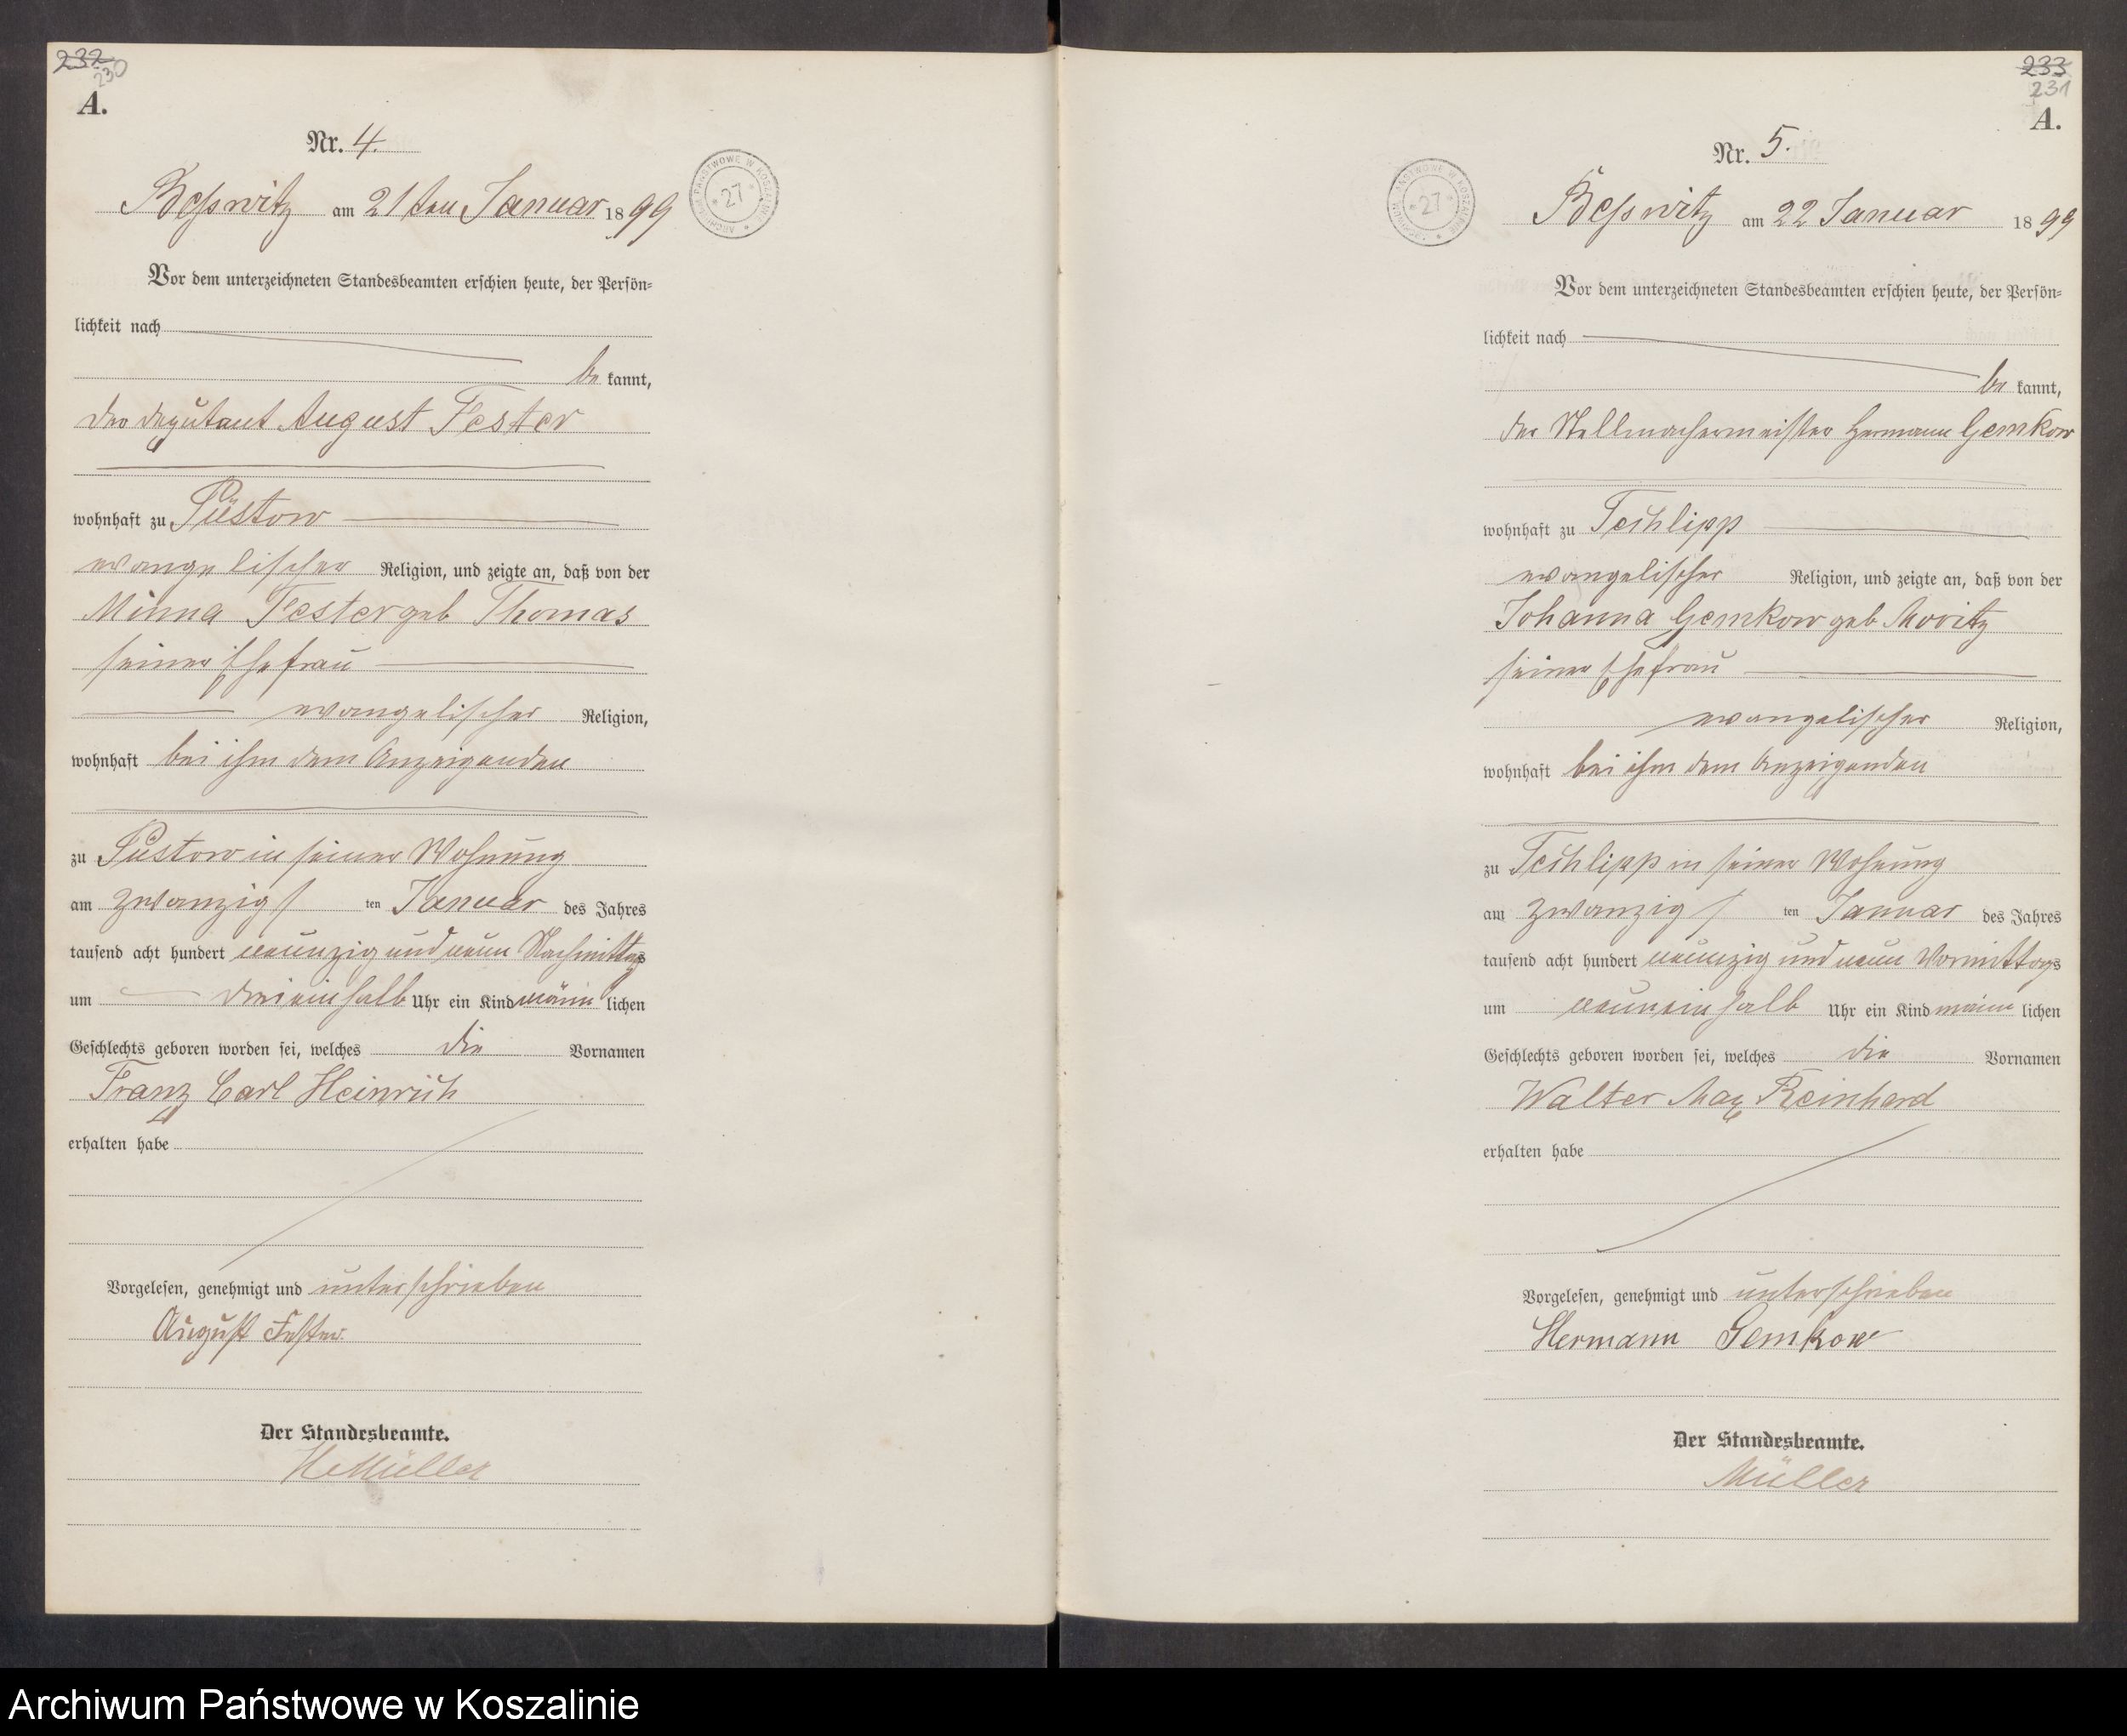 232
230
A.
Nr. 4.
Beßwitz am 21ten Januar 1899
ARCHIWUM PAŃSTWOWE W KOSZALINIE
27
Vor dem unterzeichneten Standesbeamten erschien heute, der Persön-
lichkeit nach
be kannt,
der Deputant August Fester
wohnhaft zu Püstow
evangelischer Religion, und zeigte an, daß von der
Minna Fester geb Thomas
seiner Ehefrau
evangelischer Religion,
wohnhaft bei ihm dem Anzeigenden
zu Püstow in seiner Wohnung
am zwanzigs ten Januar des Jahres
tausend acht hundert neunzig und neun Nachmittags
um dreieinhalb Uhr ein Kind männ lichen
Geschlechts geboren worden sei, welches die Vornamen
Franz Carl Heinrich
erhalten habe
Vorgelesen, genehmigt und unterschrieben
August Fester
Der Standesbeamte.
Müller
233
231
A.
Nr. 5.
ARCHIWUM PAŃSTWOWE W KOSZALINIE
27
Beßwitz am 22 Januar 1899
Vor dem unterzeichneten Standesbeamten erschien heute, der Persön-
lichkeit nach
be kannt,
der Stellmachermeister Hermann Gemkow
wohnhaft zu Techlipp
evangelischer Religion, und zeigte an, daß von der
Johanna Gemkow geb Moritz
seiner Ehefrau
evangelischer Religion,
wohnhaft bei ihm dem Anzeigenden
zu Techlipp in seiner Wohnung
am zwanzigs ten Januar des Jahres
tausend acht hundert neunzig und neun Vormittags
um neuneinhalb Uhr ein Kind männ lichen
Geschlechts geboren worden sei, welches die Vornamen
Walter Max Reinhard
erhalten habe
Vorgelesen, genehmigt und unterschrieben
Hermann Gemkow
Der Standesbeamte.
Müller
Archiwum Państwowe w Koszalinie